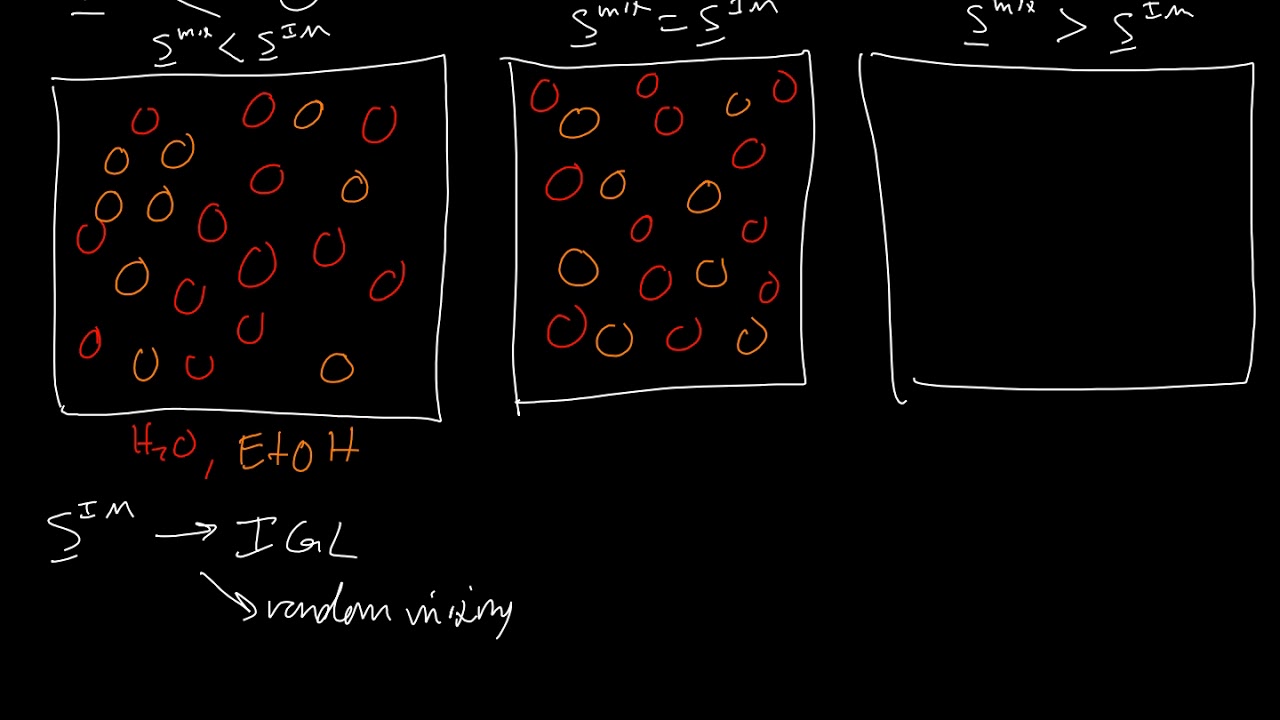 S^mix < S^IM
S^mix = S^IM
S^mix > S^IM
H₂O, EtOH
S^IM → IGL
random mixing